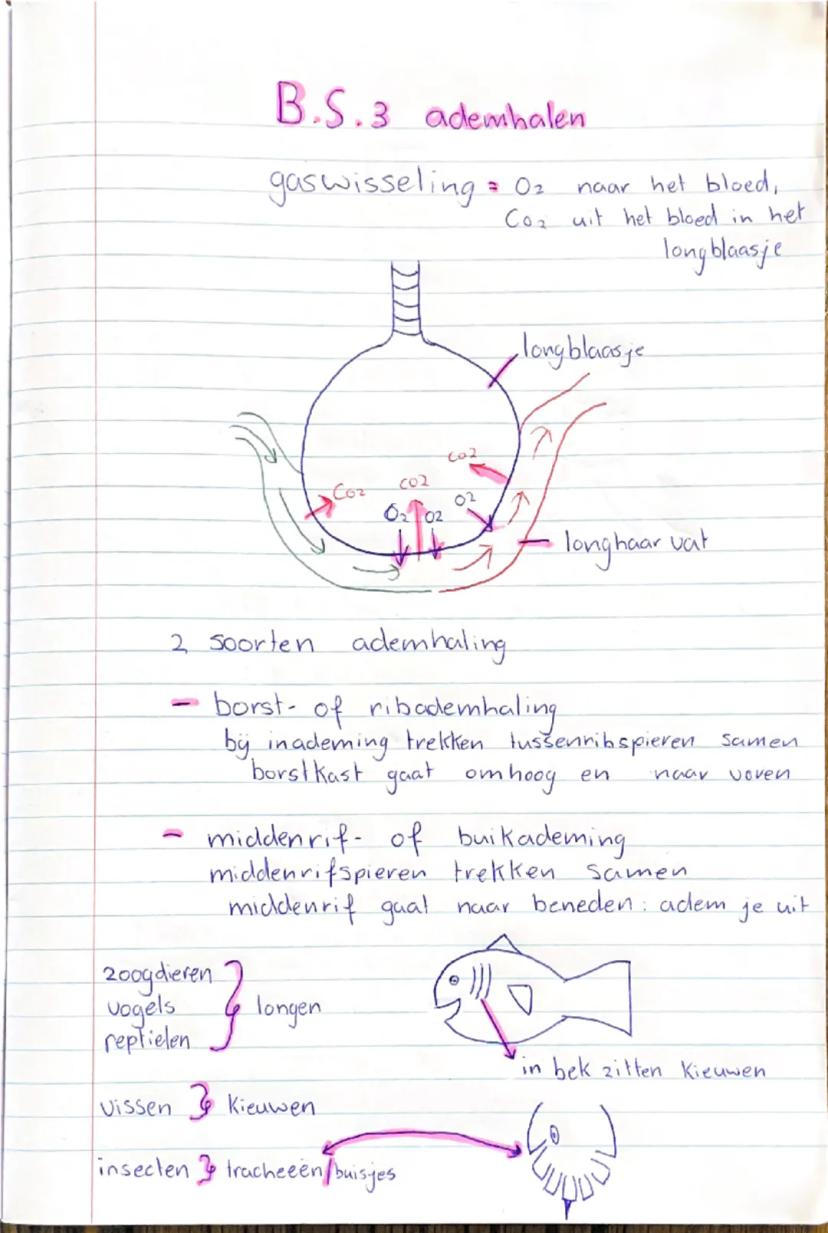 B.S.3 ademhalen
gaswisseling = O2 naar het bloed,
CO2 uit het bloed in het
longblaasje
longblaasje
CO2
CO2
CO2
O2
O2
O2
longhaar vat
2 soorten ademhaling
- borst- of ribademhaling
bij inademing trekken tussenribspieren samen
borstkast gaat omhoog en naar voren
- middenrif- of buikademing
middenrifspieren trekken samen
middenrif gaat naar beneden: adem je uit
zoogdieren
vogels
reptielen
longen
in bek zitten kieuwen
vissen } kieuwen
insecten } tracheeën/buisjes